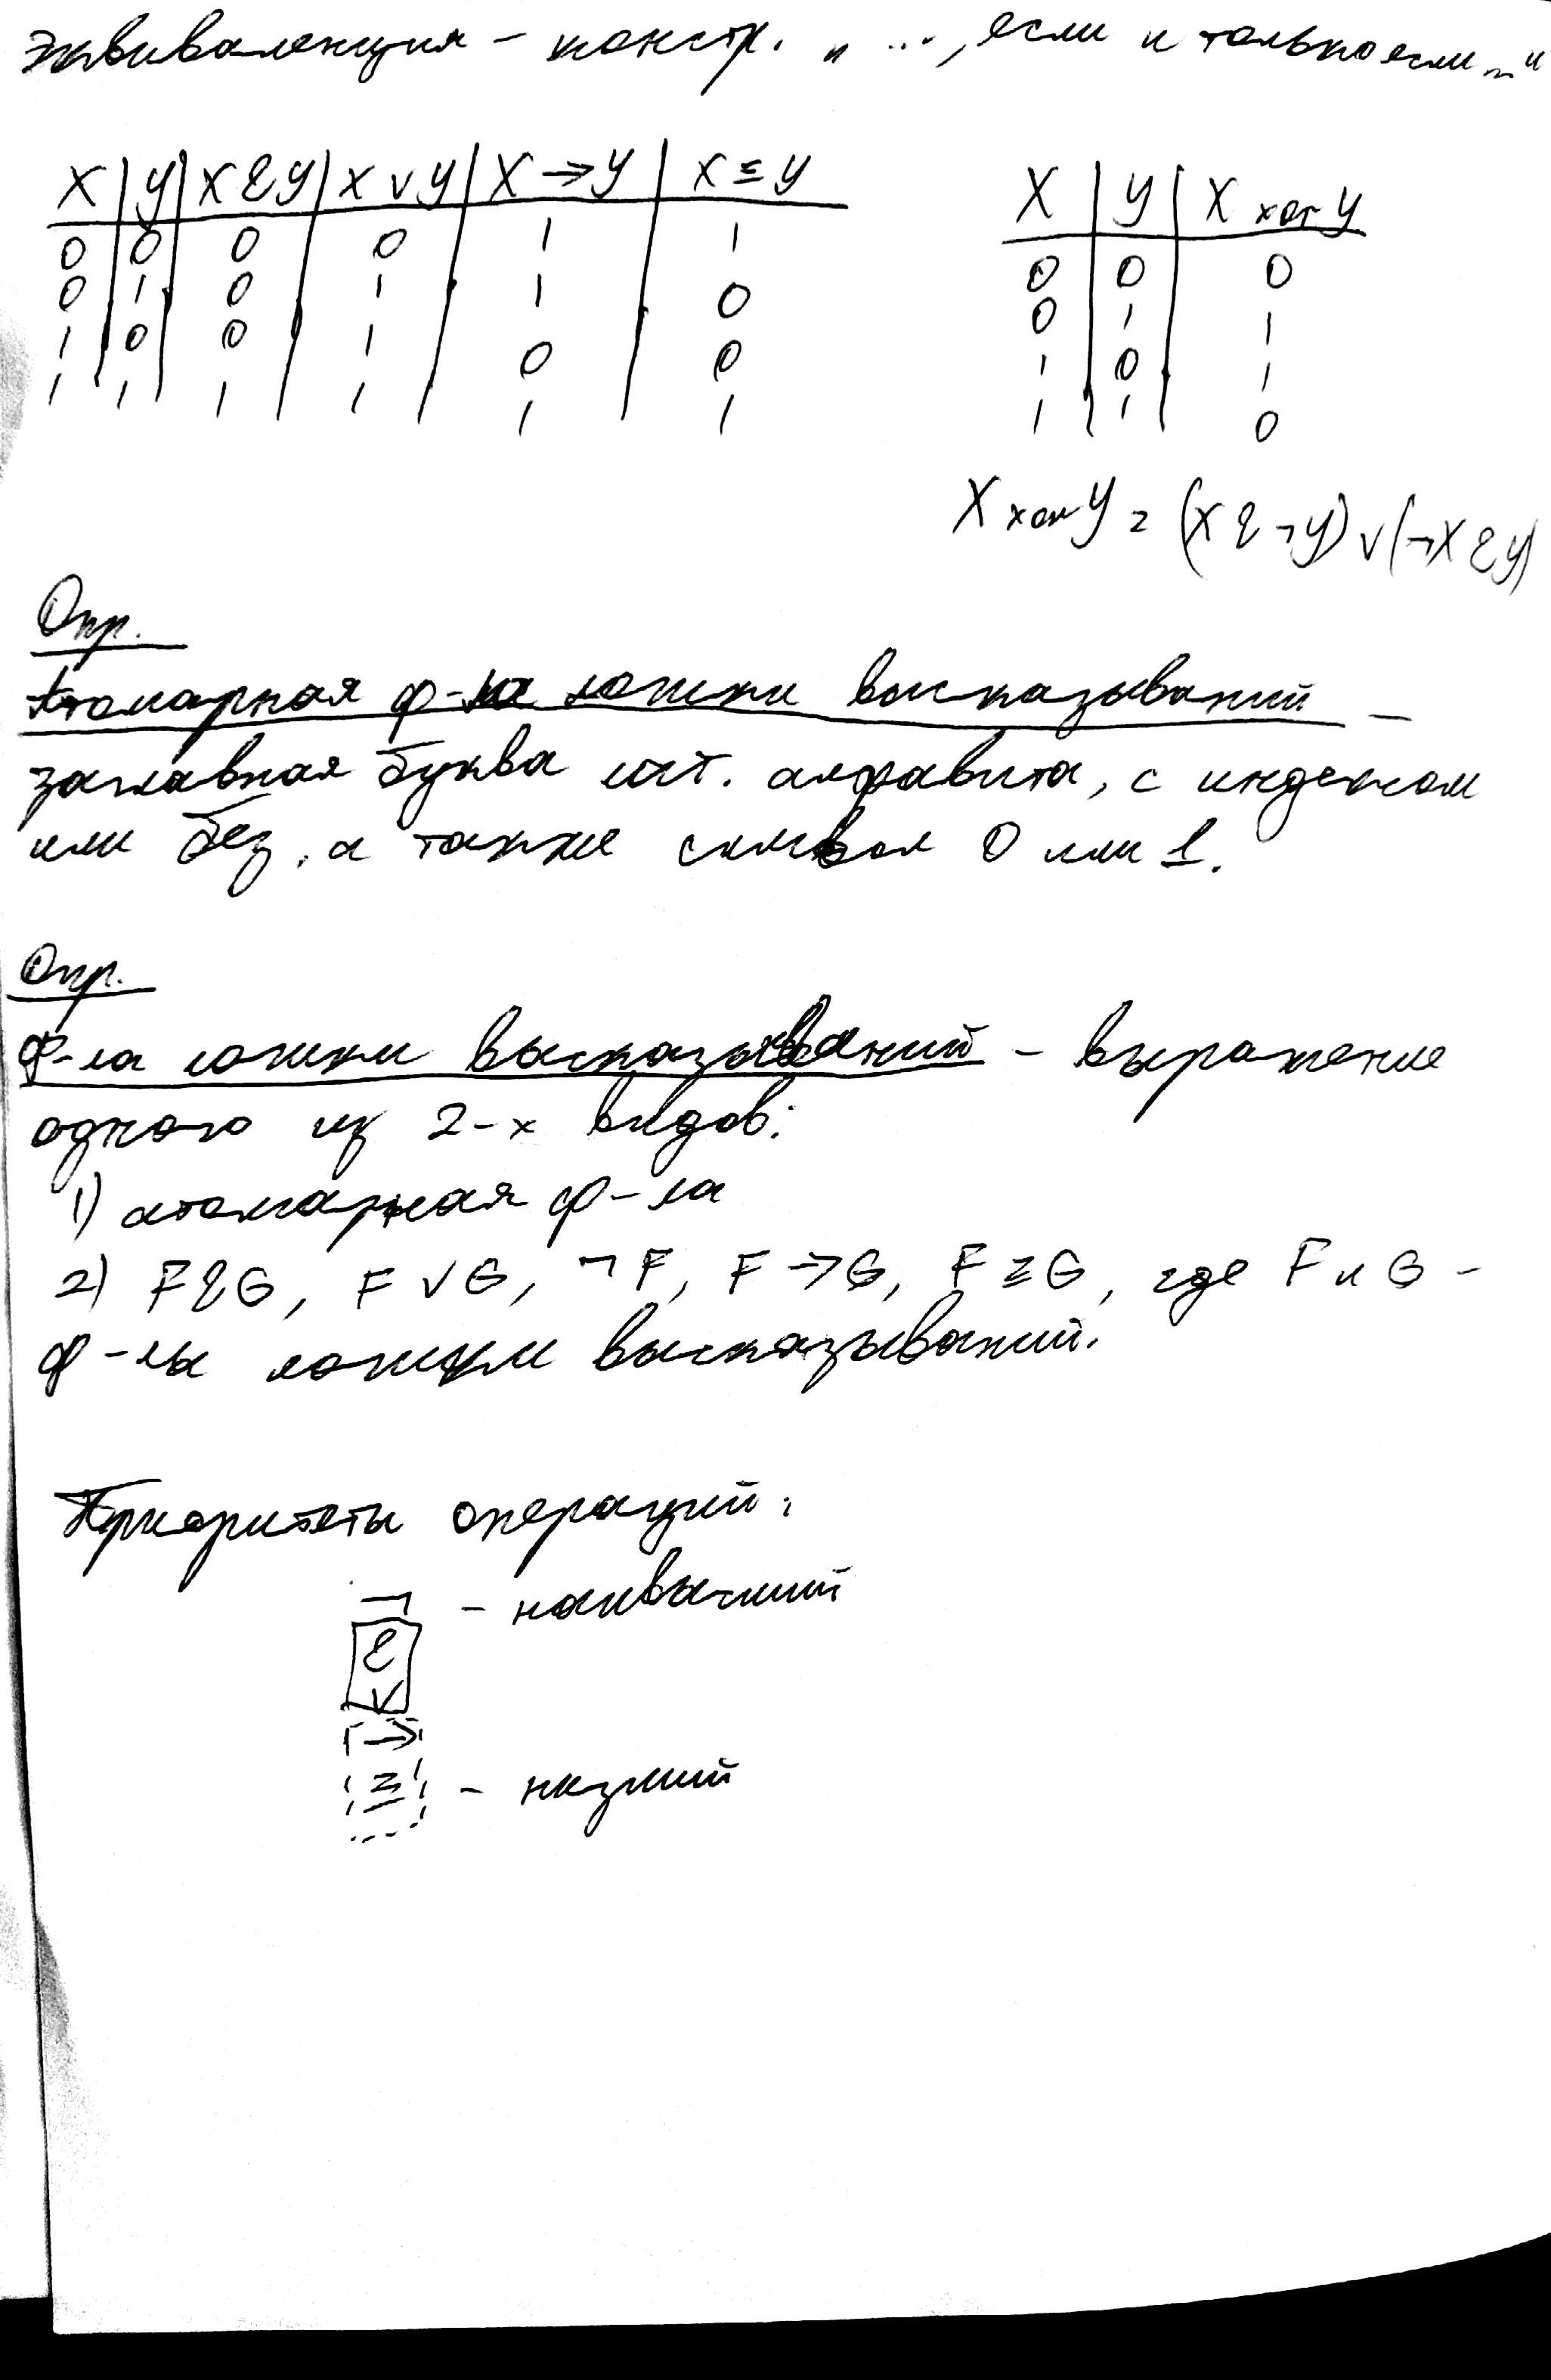 эквиваленция – констр. „ ..., если и только если ... “
X | Y | X & Y | X ∨ Y | X → Y | X ≡ Y
0 | 0 | 0 | 0 | 1 | 1
0 | 1 | 0 | 1 | 1 | 0
1 | 0 | 0 | 1 | 0 | 0
1 | 1 | 1 | 1 | 1 | 1
X | Y | X xor Y
0 | 0 | 0
0 | 1 | 1
1 | 0 | 1
1 | 1 | 0
X xor Y = (X & ¬Y) ∨ (¬X & Y)
Опр.
Атомарная ф-ла логики высказываний –
заглавная буква лат. алфавита, с индексом
или без, а также символ 0 или 1.
Опр.
Ф-ла логики высказываний – выражение
одного из 2-х видов:
1) атомарная ф-ла
2) F & G, F ∨ G, ¬F, F → G, F ≡ G, где F и G –
ф-лы логики высказываний.
Приоритеты операций:
¬ – наивысший
&
∨
→
≡ – низший